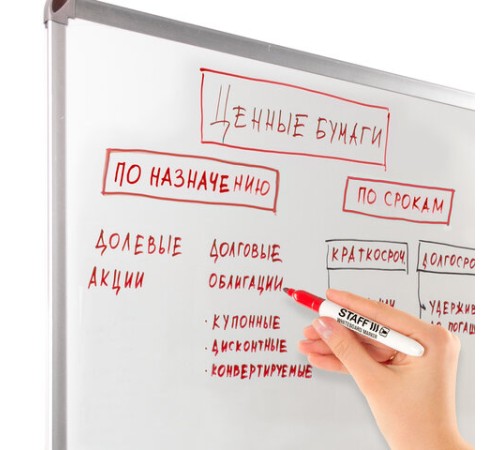 ЦЕННЫЕ БУМАГИ
ПО НАЗНАЧЕНИЮ
ПО СРОКАМ
ДОЛЕВЫЕ
АКЦИИ
ДОЛГОВЫЕ
ОБЛИГАЦИИ
· КУПОННЫЕ
· ДИСКОНТНЫЕ
· КОНВЕРТИРУЕМЫЕ
КРАТКОСРОЧ
ДОЛГОСРО
· УДЕРЖИВ
ДО ПОГАШ
STAFF
WHITEBOARD MARKER